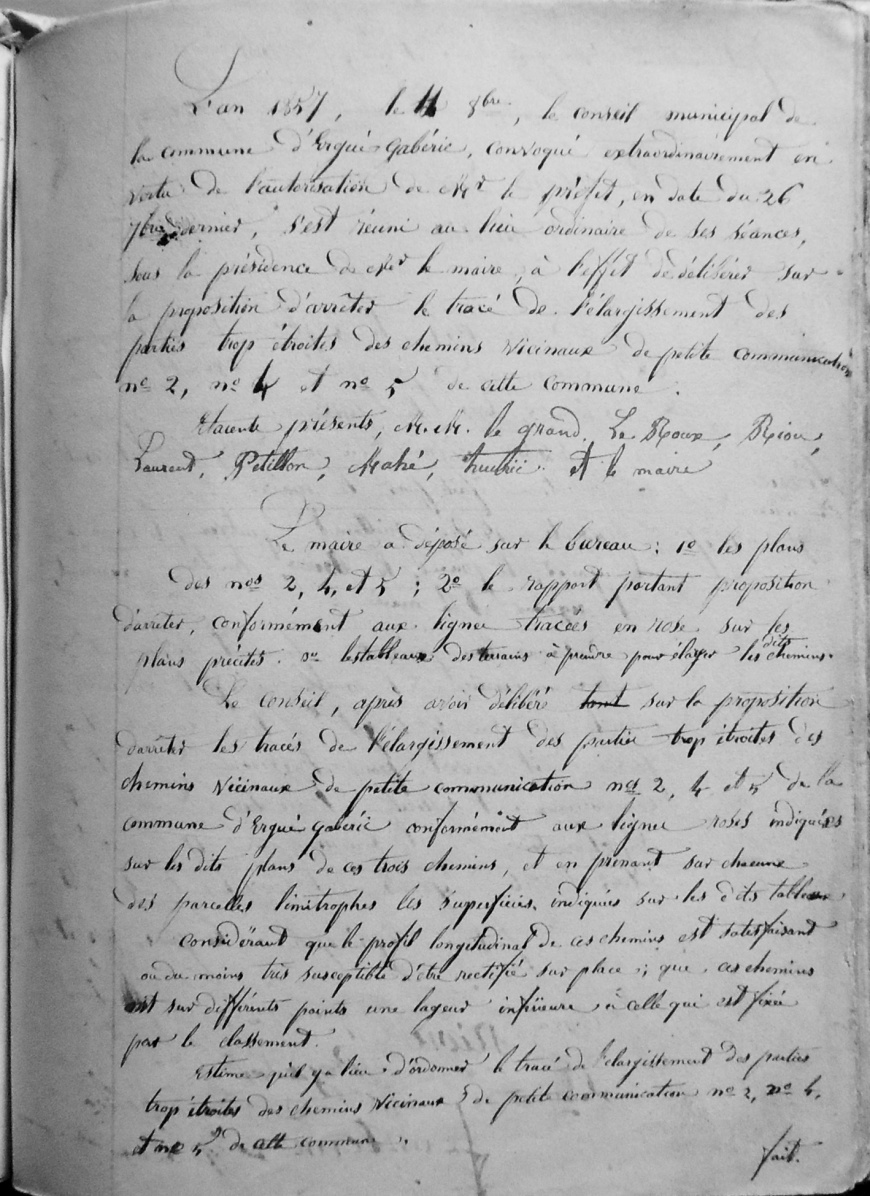 L'an 1857, le 4 8bre, le conseil municipal de
la commune d'Ergué-Gabéric, convoqué extraordinairement en
vertu de l'autorisation de Mr le préfet, en date du 26
7bre dernier, s'est réuni au lieu ordinaire de ses séances,
sous la présidence de Mr le maire, à l'effet de délibérer sur
la proposition d'arrêter le tracé de l'élargissement des
parties trop étroites des chemins vicinaux de petite communication
no 2, no 4 et no 5 de cette commune.
Etaient présents, M.M. le grand, Le Roux, Riou,
Laurent, Petillon, Mahé, et le maire
Le maire a déposé sur le bureau : 1o les plans
des nos 2, 4, et 5 ; 2o le rapport portant proposition
d'arrêter, conformément aux lignes tracées en rose sur les
plans précités. les tableaux des terrains à prendre pour élargir les dits chemins.
Le Conseil, après avoir délibéré tant sur la proposition
d'arrêter les tracés de l'élargissement des parties trop étroites des
chemins vicinaux de petite communication nos 2, 4 et 5 de la
commune d'Ergué gabéric conformément aux lignes roses indiquées
sur les dits plans de ces trois chemins, et en prenant sur chacune
des parcelles limitrophes les superficies indiquées sur les dits tableaux
Considérant que le profil longitudinal de ces chemins est satisfaisant
ou du moins très susceptible d'être rectifié sur place ; que ces chemins
ont sur différents points une lageur inférieure à celle qui est fixée
par le classement.
Estime qu'il y a lieu d'ordonner le tracé de l'élargissement des parties
trop étroites des chemins vicinaux de petite communication no 2, no 4,
et no 5 de cette commune.
fait.